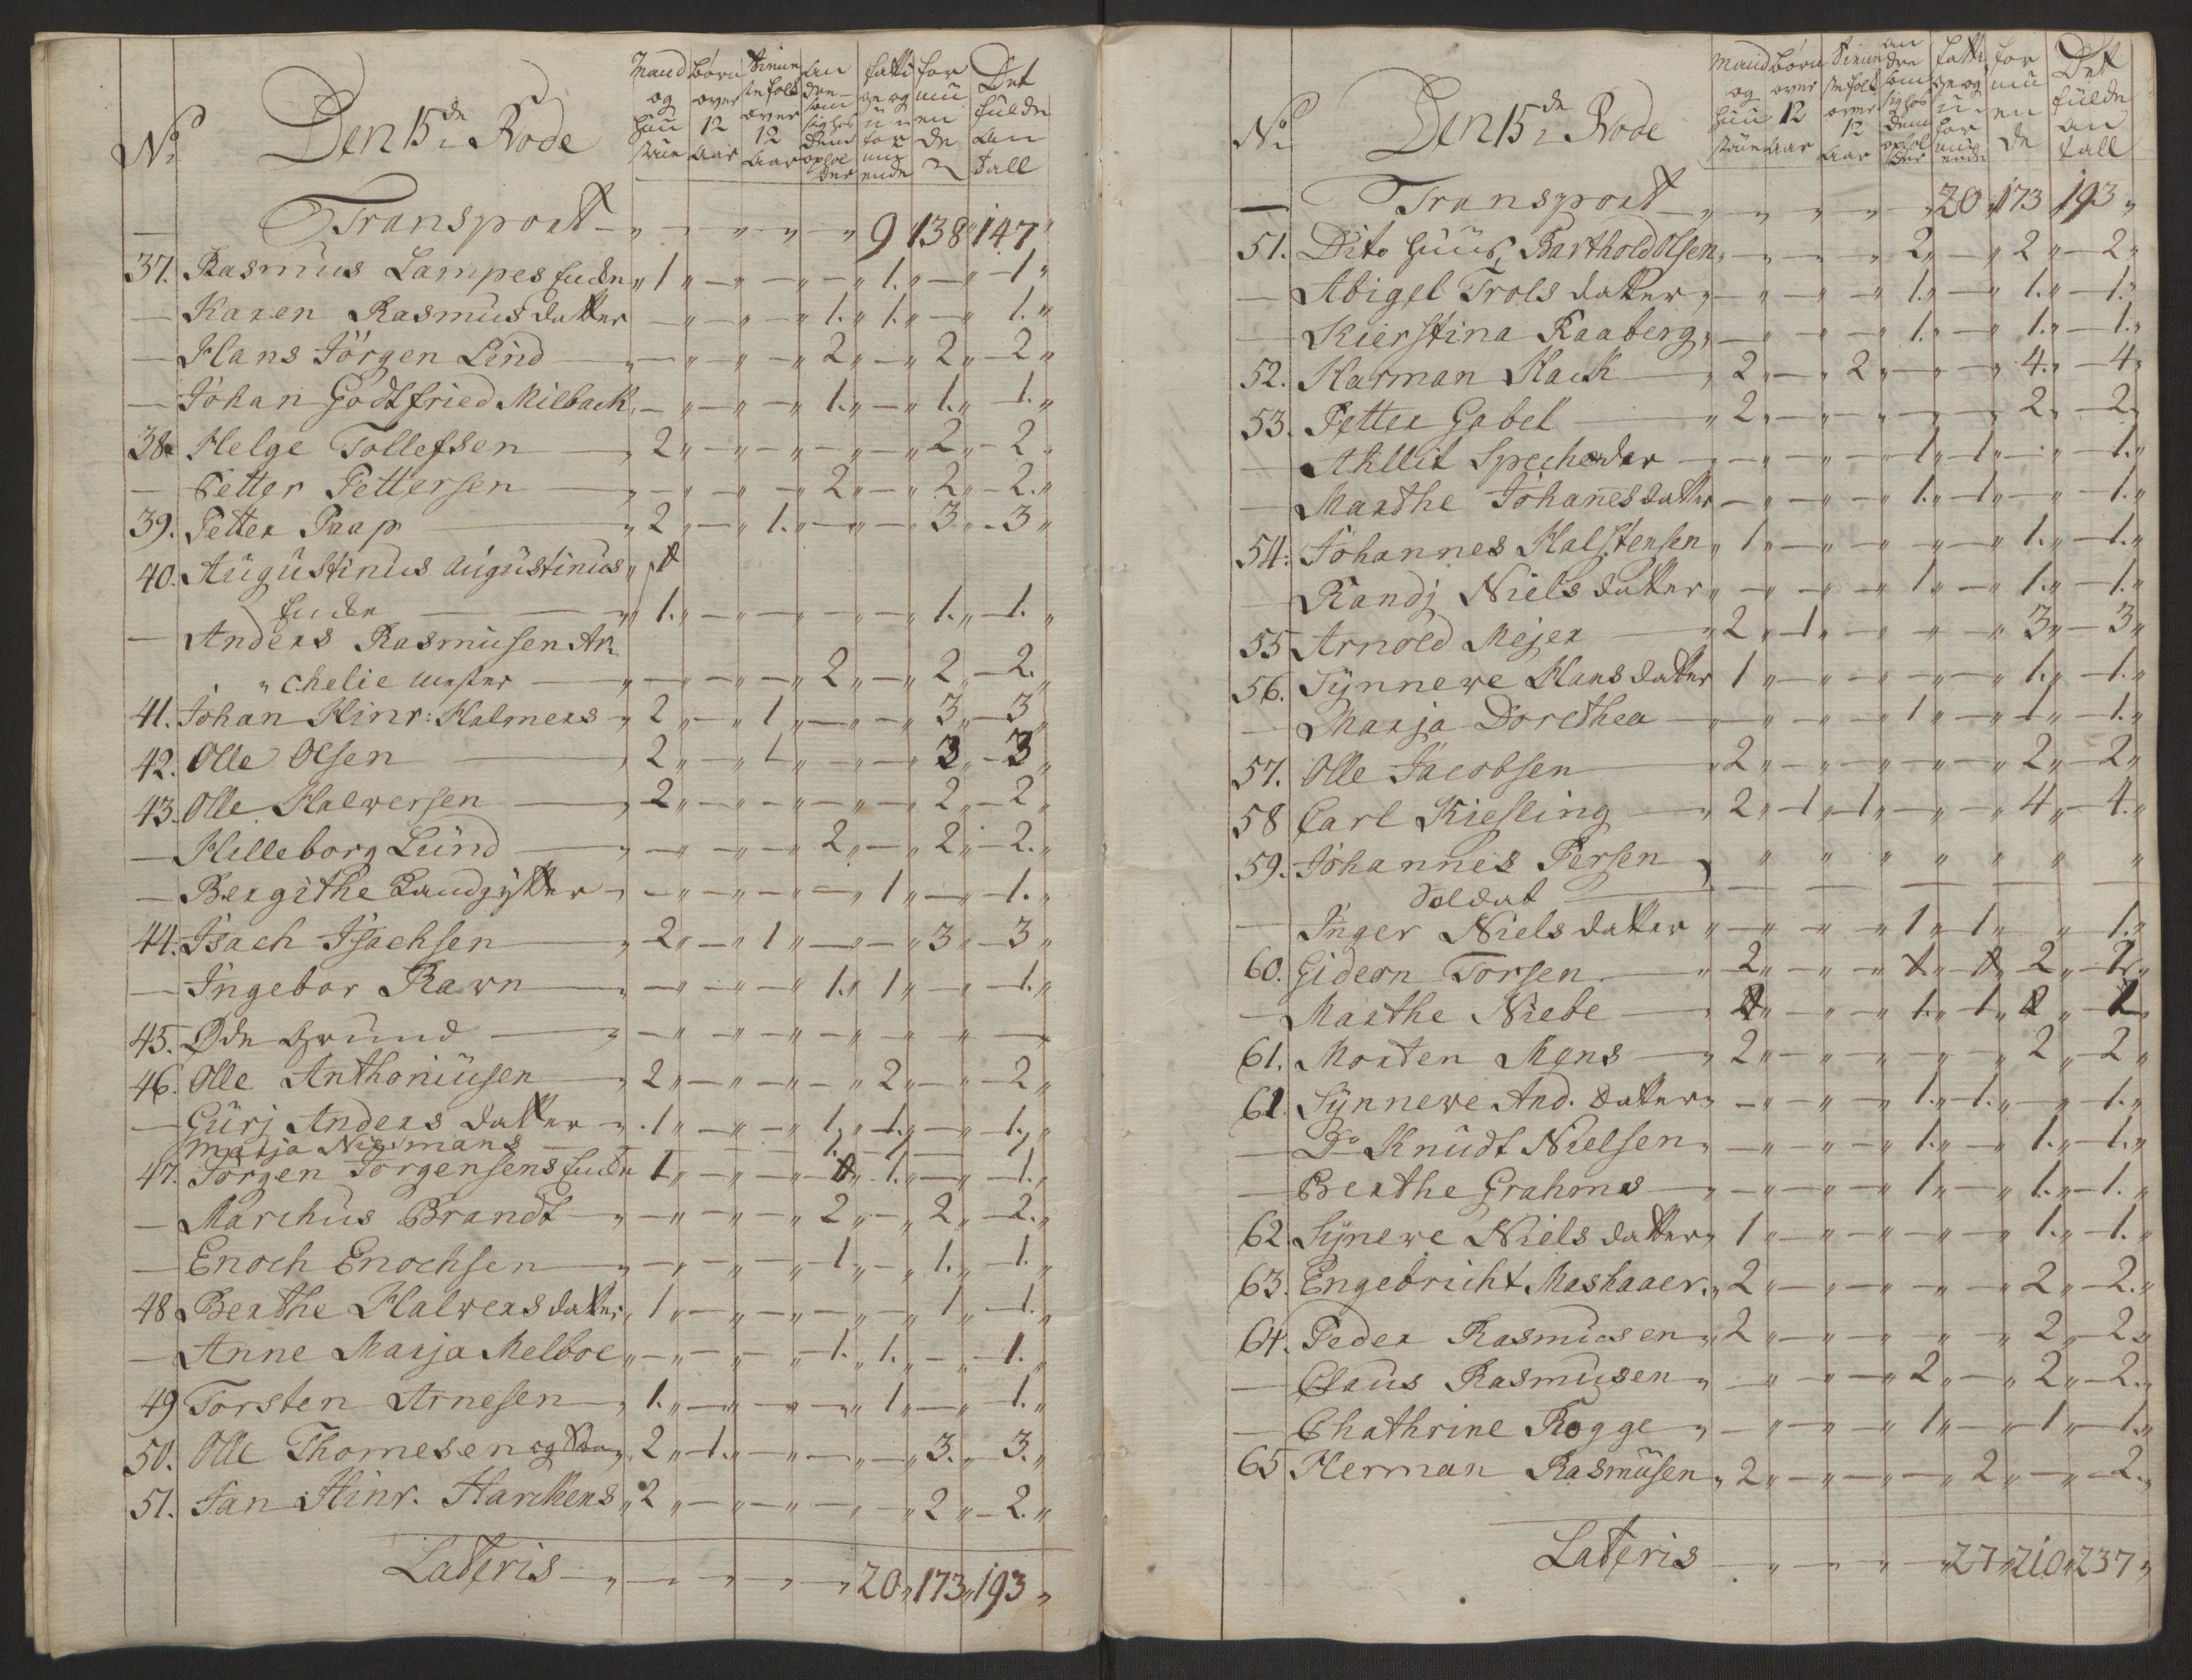 No
Den 15de Rode
Mand og Hustrue
børn over 12 Aar
Tieneste folk over 12 Aar
andre som sig hos dem opholder
fattige og uformuende
formuende
Det fulde Antall
— Transport — „ — „ — „ — „ — „ 9 „ 138 „ 147 „
37. Rasmus Lampes Enche „ 1 „ — „ — „ — „ 1. „ — „ 1 „
— Karen Rasmusdatter — „ — „ — „ 1. „ 1. „ — „ 1. „
— Hans Jörgen Lind — „ — „ — „ — 2 „ — „ 2 „ — 2 „
— Johan Godtfried Milback, — „ — „ — „ 1. „ — „ 1. „ — 1. „
38. Helge Tollefsen — „ 2 „ — „ — „ — „ — „ 2 „ — 2 „
— Petter Pettersen — „ — „ — „ — 2 „ — „ 2 „ — 2. „
39. Petter Paap — „ 2 „ — „ 1. „ — „ — „ 3 „ — 3 „
40. Augustinus Augustinus „
Enche — „ 1. „ — „ — „ — „ — „ 1. „ — 1. „
— Anders Rasmusen Ar
„ chelie mester — „ — „ — „ — „ 2 „ — „ 2 „ — 2. „
41. Johan Hinr: Halmers — „ 2 „ — „ 1 „ — „ — „ 3 „ — 3 „
42. Olle Olsen — „ 2 „ — „ 1 „ — „ — „ 3 „ — 3 „
43. Olle Halwersen — „ 2 „ — „ — „ — „ — „ 2 „ — 2 „
— Hilleborg Lund — „ — „ — „ — „ 2 „ — „ 2 „ — 2. „
— Bergithe — „ — „ — „ — „ — „ 1 „ — „ — 1. „
44. Isach Isachsen — „ 2 „ — „ 1 „ — „ — „ 3 „ — 3 „
— Ingebor Rawn — „ — „ — „ — „ 1. „ 1 „ — „ — 1. „
45. Øde Grund — „ — „ — „ — „ — „ — „ — „ —
46. Olle Anthoniusen — „ 2 „ — „ — „ — „ 2 „ — „ — 2 „
— Guri Anders datter — „ 1 „ — „ — „ 1. „ 1. „ — „ 1. „
Marja Niemans — 1. — 1 — 1
47. Jörgen Jörgensens Enche 1 „ — „ — „ — „ 1. „ — „ — 1. „
— Marchus Brandt — „ — „ — „ — „ 2 „ — „ 2 „ — 2. „
— Enoch Enochsen — „ — „ — „ — „ 1 „ — „ 1. „ — 1. „
48 Berthe Halwersdatter „ 1 „ — „ — „ — „ — „ 1 „ — 1. „
— Anne Marja Melboe „ — „ — „ — „ 1. „ 1. „ — „ — 1. „
49 Torsten Arnesen — „ 1. „ — „ — „ — „ 1 „ — „ — 1. „
50. Olle Thomesen og Sön „ 2 „ 1. „ — „ — „ — „ 3. „ — 3. „
51. Jan Hinr. Harckens „ 2 „ — „ — „ — „ — „ 2 „ — 2. „
Lateris — „ — „ — „ — „ — „ 20 „ 173 „ 193 „
No
Den 15de Rode
Mand og Hustrue
børn over 12 Aar
Tieneste folk over 12 Aar
andre som sig hos dem opholder
fattige og uformuende
formuende
Det fulde antall
— Transport — „ — „ — „ — „ — „ 20 „ 173 „ 193 „
51. Dito Huus, Barthold Olsen „ — „ — „ — „ 2 „ — „ 2 „ — 2 „
— Abigel Trols datter „ — „ — „ — „ 1. „ — „ 1. „ — 1. „
— Kierstina Raaberg „ — „ — „ — „ 1. „ — „ 1. „ — 1. „
52. Harman Hack — „ 2 „ — „ 2 „ — „ — „ 4. „ — 4 „
53. Petter Gabel — „ 2 „ — „ — „ — „ — „ 2 „ — 2 „
— — „ — „ — „ 1 „ 1 „ — „ — 1. „
— Marthe Johanesdatter — „ — „ — „ 1. „ 1 „ — „ — 1. „
54. Johannes Halstensen „ 1 „ — „ — „ — „ — „ 1. „ — 1. „
— Randj Niels datter „ — „ — „ — „ 1 „ — „ 1. „ — 1. „
55 Arnold Mejer — „ 2 „ 1 „ — „ — „ — „ 3 „ — 3 „
56. Synnewe Hansdatter 1 „ — „ — „ — „ — „ 1. „ — 1. „
— Marja Dorethea — „ — „ — „ — „ 1 „ — „ 1 „ — 1. „
57. Olle Jacobsen — „ 2 „ — „ — „ — „ — „ 2 „ — 2 „
58 Carl Kiesling — „ 2 „ 1 „ 1 „ — „ — „ 4 „ — 4. „
59. Johannes Persen „ „ „ „ „ „ „
Soldat — — — — — —
— Inger Niels datter „ — „ — „ — „ 1 „ 1 „ „ 1. „
60. Gideon Torsen — „ 2 „ — „ — „ 2 „ — 2 „
— Marthe Niebe — „ — „ — „ 1. „ 1. „ „ — 1 „
61. Morten Mens — „ 2 „ — „ — „ — „ — „ 2 „ — 2 „
61. Synnewe And. datter „ — „ — „ — „ 1. „ 1. „ — „ — 1. „
— Do Knudt Nielsen „ — „ — „ — „ 1. „ — „ 1. „ — 1. „
— Berthe Grahms — „ — „ — „ — „ 1 „ — „ 1. „ — 1. „
62 Synewe Niels datter „ 1 „ — „ — „ — „ — „ 1. „ — 1. „
63. Engebricht Mashaaer. „ 2 „ — „ — „ — „ — „ 2 „ — 2. „
64. Peder Rasmusen „ 2 „ — „ — „ „ „ 2 „ — 2 „
— Claus Rasmusen „ — „ — „ — „ 2 „ — „ 2 „ — 2. „
— Chathrine Rogge „ — „ — „ — „ 1 „ — „ 1 „ — 1. „
65 Herman Rasmusen „ 2 „ — „ — „ — „ 2 „ — „ — 2. „
Lateris — „ — „ — „ — „ 27 „ 210 „ 237 „